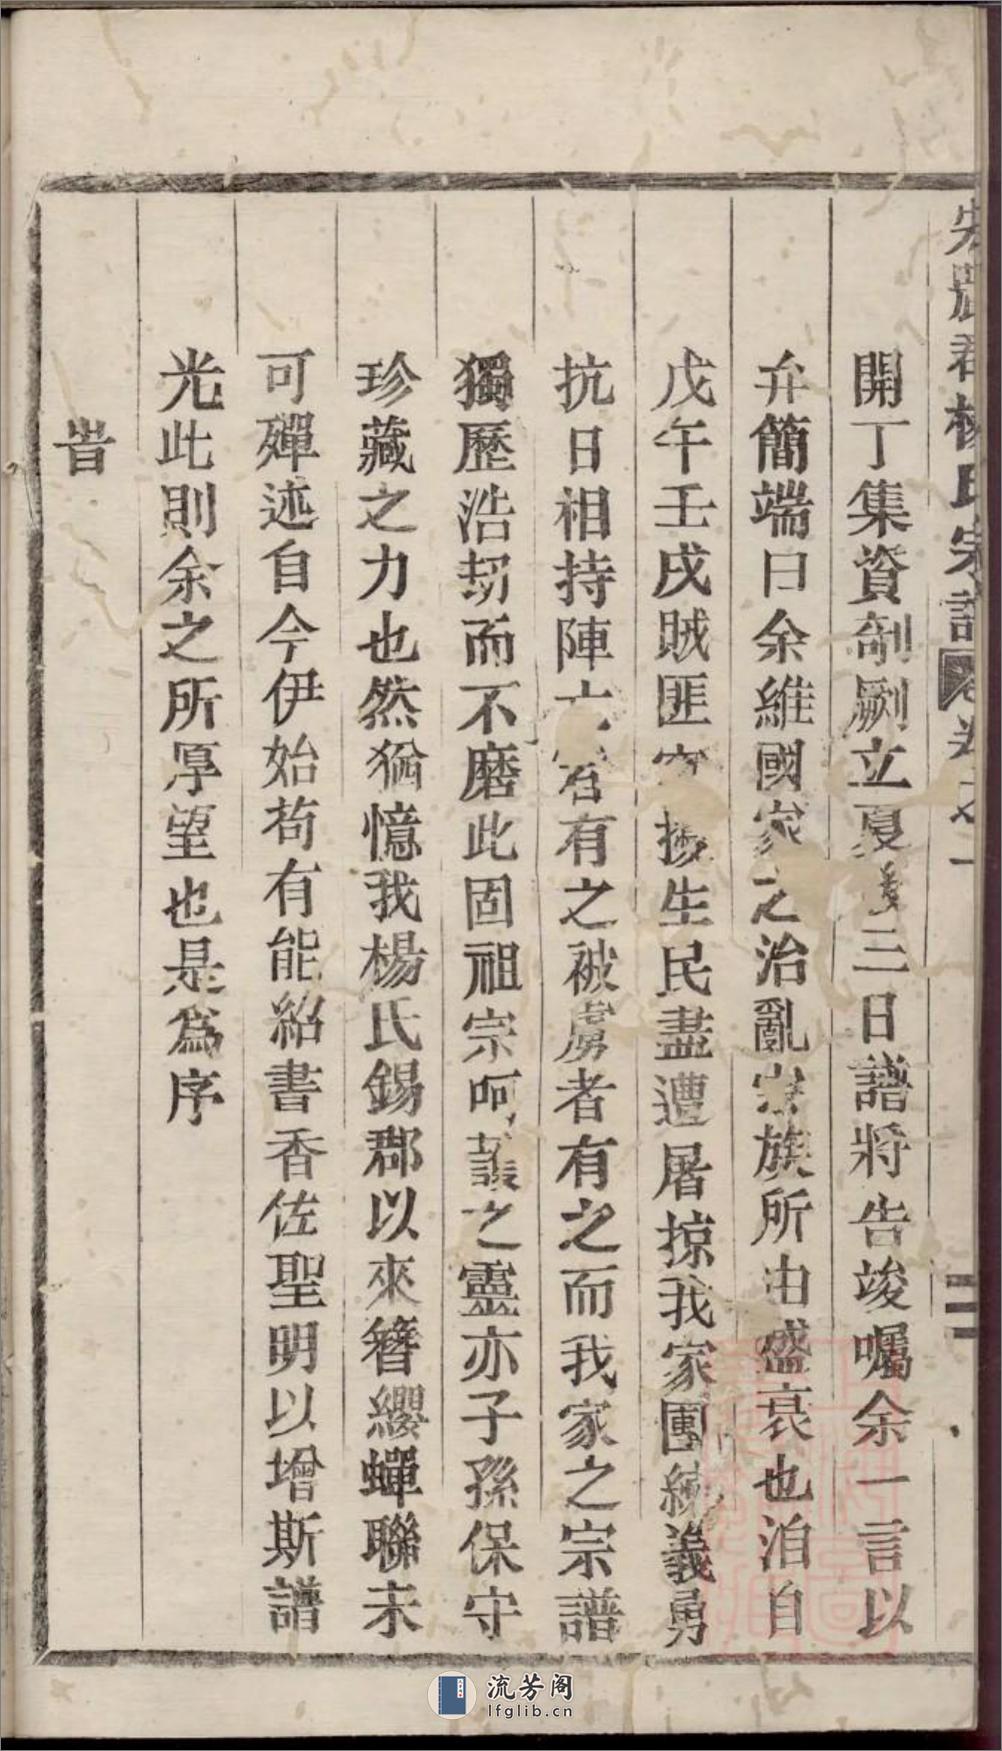 宏農郡楊氏宗譜 卷之一
開丁集資剞劂立夏後三日譜將告竣囑余一言以
弁簡端曰余維國家之治亂宗族所由盛衰也洎自
戊午壬戌賊匪擾生民盡遭屠掠我家團練義勇
抗日相持陣亡者有之被虜者有之而我家之宗譜
獨歷浩刧而不磨此固祖宗呵護之靈亦子孫保守
珍藏之力也然猶憶我楊氏錫郡以來簪纓蟬聯未
可殫述自今伊始苟有能紹書香佐聖明以增斯譜
光此則余之所厚望也是為序
旹
流芳阁
lfglib.cn